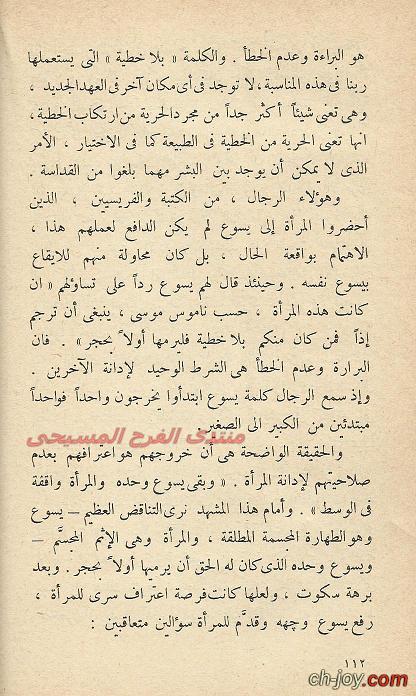 هو البراءة وعدم الخطأ . والكلمة « بلا خطية » التى يستعملها
ربنا فى هذه المناسبة، لا توجد فى أى مكان آخر فى العهد الجديد ،
وهى تعنى شيئاً أكثر جداً من مجرد الحرية من ارتكاب الخطية،
انها تعنى الحرية من الخطية فى الطبيعة كما فى الاختيار ، الأمر
الذى لا يمكن أن يوجد بين البشر مهما بلغوا من القداسة .
وهؤلاء الرجال ، من الكتبة والفريسيين ، الذين
أحضروا المرأة إلى يسوع لم يكن الدافع لعملهم هذا ،
الاهتمام بواقعة الحال ، بل كان محاولة منهم للايقاع
بيسوع نفسه . وحينئذ قال لهم يسوع رداً على تساؤلهم « ان
كانت هذه المرأة ، حسب ناموس موسى ، ينبغى أن ترجم
إذاً فمن كان منكم بلا خطية فليرمها أولاً بحجر » . فان
البرارة وعدم الخطأ هى الشرط الوحيد لإدانة الآخرين .
وإذ سمع الرجال كلمة يسوع ابتدأوا يخرجون واحداً فواحداً
مبتدئين من الكبير الى الصغير.
منتدى الفرح المسيحى
والحقيقة الواضحة هى أن خروجهم هو اعترافهم بعدم
صلاحيتهم لإدانة المرأة . « وبقى يسوع وحده والمرأة واقفة
فى الوسط » . وأمام هذا المشهد نرى التناقض العظيم – يسوع
وهو الطهارة المجسمة المطلقة ، والمرأة وهى الإثم المجسَّم –
ويسوع وحده الذى كان له الحق أن يرميها أولاً بحجر . وبعد
برهة سكوت ، ولعلها كانت فرصة اعتراف سرى للمرأة ،
رفع يسوع وجهه وقدَّم للمرأة سؤالين متعاقبين :
١١٢
ch-joy.com